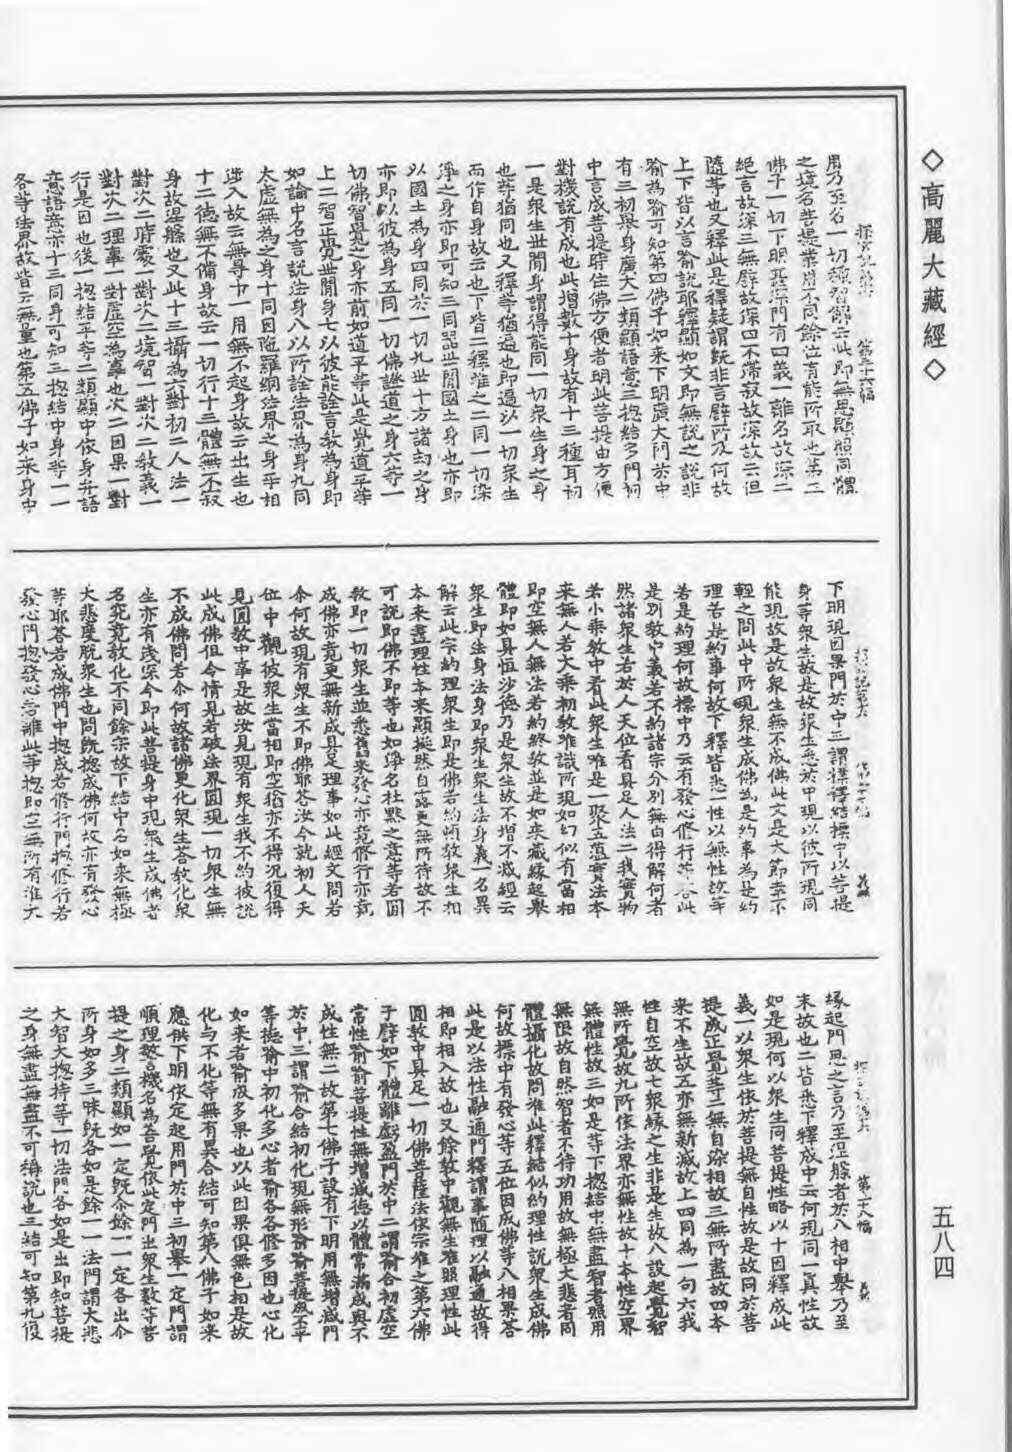 ◇高麗大藏經◇
五八四
用乃至名一切種智解云此即無思慮照同體
之境名菩提業用不同餘泣有能所取也第三
佛子一切下明甚深門有四義一離名故深二
絕言故深三無譬故深四不滯寂故深故云但
隨等也又釋此是釋疑謂旣非言譬所及何故
上下皆以言喻說耶釋顯如文即無說之說非
喻為喻可知第四佛子如來下明廣大門於中
有三初舉身廣大二類顯語意三揔結多門初
中言成菩提時住佛方便者明此菩提由方便
對機說有成也此增數十身故有十三種耳初
一是衆生世閒身謂得能同一切衆生身之身
也等猶同也又釋等猶遍也即遍以一切衆生
而作自身故云也下皆二釋准之二同一切染
淨之身亦即可知三同器世閒國土身也亦即
以國土為身四同於一切九世十方諸刧之身
亦即以彼為身五同一切佛證道之身六等一
切佛智覺之身亦前如道平等此是覺道平等
上二智正覺世閒身七以彼能詮言教為身即
如論中名言說法身八以所詮法界為身九同
太虛無為之身十同因陁羅網法界之身平相
迯入故云無㝵十一用無不起身故云出生也
十二德無不備身故云一切行十三體無不寂
身故涅槃也又此十三攝為六對初二人法一
對次二時處一對次二境智一對次二教義一
對次二理事一對虛空為事也次二因果一對
行是因也後一揔結平等二類顯中依身弁語
意語意亦十三同身可知三揔結中身等一一
各等法界故皆云無量也第五佛子如來身中
下明現因果門於中三謂標釋結標中以菩提
身等衆生故是故衆生悉於中現以彼所現同
能現故是故衆生無不成佛此文是大節幸不
輕之問此中所現衆生成佛為是約事為是約
理若是約事何故下釋皆悉一性以無性故等
若是約理何故標中乃云有發心修行等答此
是別教中義若不約諸宗分別無由得解何者
然諸衆生若於人天位看具足人法二我實物
若小乘教中看此衆生唯是一聚五蘊實法本
來無人若大乘初教唯識所現如幻似有當相
即空無人無法若約終教並是如來藏緣起舉
體即如具恒沙德乃是衆生故不增不減經云
衆生即法身法身即衆生衆生法身義一名異
解云此宗約理衆生即是佛若約頓教衆生相
本來盡理性本來顯挺然自露更無所待故不
可說即佛不即等也如淨名杜默之意等若圓
教即一切衆生並悉舊來發心亦竟修行亦竟
成佛亦竟更無新成具足理事如此經文問若
尒何故現有衆生不即佛耶答汝今就初人天
位中觀彼衆生當相即空猶亦不得況復得
見圓教中事是故汝見現有衆生我不約彼說
此成佛但令情見若破法界圓現一切衆生無
不成佛問若尒何故諸佛更化衆生答教化衆
生亦有淺深今即此菩提身中現衆生成佛者
名究竟教化不同餘宗故下結中名如來無極
大悲度脫衆生也問旣揔成佛何故亦有發心
等耶答若成佛門中揔成若修行門揔修行若
發心門揔發心若離此等揔即空無所有准大
緣起門思之言乃至涅槃者於八相中舉乃至
末故也二皆悉下釋成中云何現同一真性故
如是現何以衆生同菩提性略以十因釋成此
義一以衆生依於菩提無自性故是故同於菩
提成正覺等二無自深相故三無所盡故四本
來不生故五亦無新滅故上四同為一句六我
性自空故七衆緣之生非是生故八設起覺智
無所覺故九所依法界亦無性故十本性空界
無體性故三如是等下揔結中無盡智者照用
無限故自然智者不待功用故無極大悲者同
體攝化故問准此釋結似約理性說衆生成佛
何故標中有發心等五位因成佛等八相果答
此是以法性融通門釋謂事隨理以融通故得
相即相入故也又餘教中觀無生唯照理性此
圓教中具足一切佛菩薩法依宗准之第六佛
子譬如下體離虧盈門於中二謂喻合初虛空
常性喻喻菩提性無增減德以體常滿成與不
成性無二故第七佛子設有下明用無增減門
於中三謂喻合結初化現無形喻喻菩提成不平
等德喻中初化多心者喻各各修多因也心化
如來者喻成多果也以此因果俱無色相是故
化與不化等無有異合結可知第八佛子如來
應供下明依定起用門於中三初舉一定門謂
順理憗機名為善覺依此定門出衆生數等菩
提之身二類顯如一定旣尒餘一一定各出尒
所身如多三昧旣各如是餘一一法門謂大悲
大智大揔持等一切法門各如是出即知菩提
之身無盡無盡不可稱說也三結可知第九復